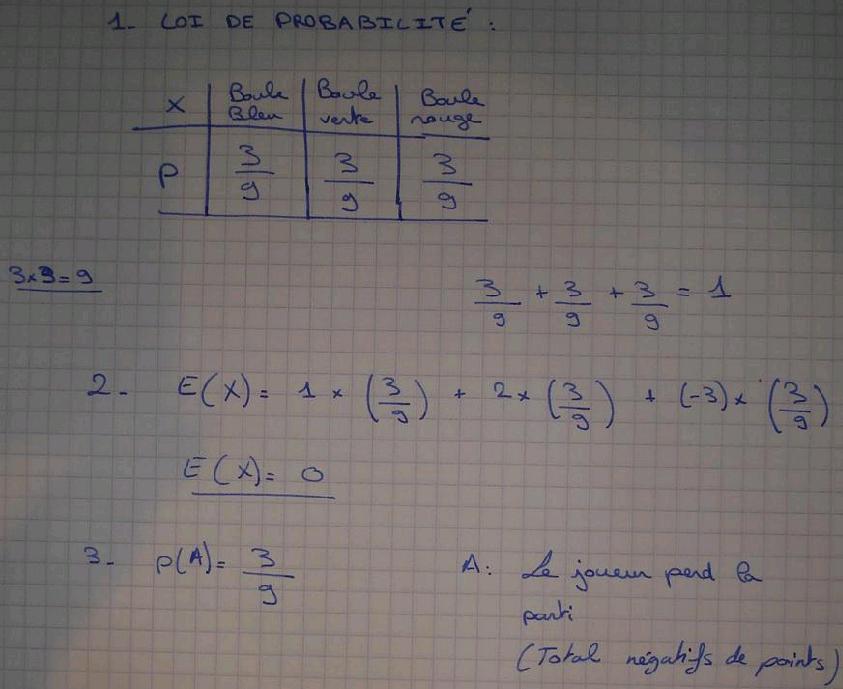 1- LOI DE PROBABILITÉ :
X | Boule Bleu | Boule verte | Boule rouge
P | 3/9 | 3/9 | 3/9
3×3=9
3/9 + 3/9 + 3/9 = 1
2- E(X)= 1 × (3/9) + 2 × (3/9) + (-3) × (3/9)
E(X)= 0
3- P(A)= 3/9
A: Le joueur perd la
parti
(Total négatifs de points)